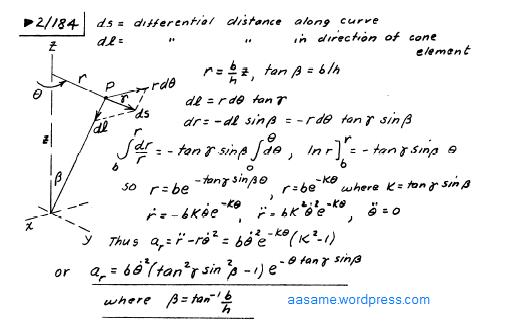 ▶2/184 ds = differential distance along curve
dl = " " in direction of cone element
z
r
P
rdθ
θ
γ
dl
ds
z
β
x
y
r = b/h z, tan β = b/h
dl = r dθ tan γ
dr = -dl sin β = -r dθ tan γ sin β
∫_b^r dr/r = -tan γ sin β ∫_0^θ dθ, ln r]_b^r = -tan γ sin β θ
so r = be^(-tan γ sin β θ), r = be^(-Kθ) where K = tan γ sin β
ṙ = -bKθ̇e^(-Kθ), r̈ = bK²θ̇²e^(-Kθ), θ̈ = 0
Thus a_r = r̈ - rθ̇² = bθ̇²e^(-Kθ)(K²-1)
or a_r = bθ̇²(tan²γ sin²β - 1)e^(-θ tan γ sin β)
where β = tan⁻¹ b/h
aasame.wordpress.com